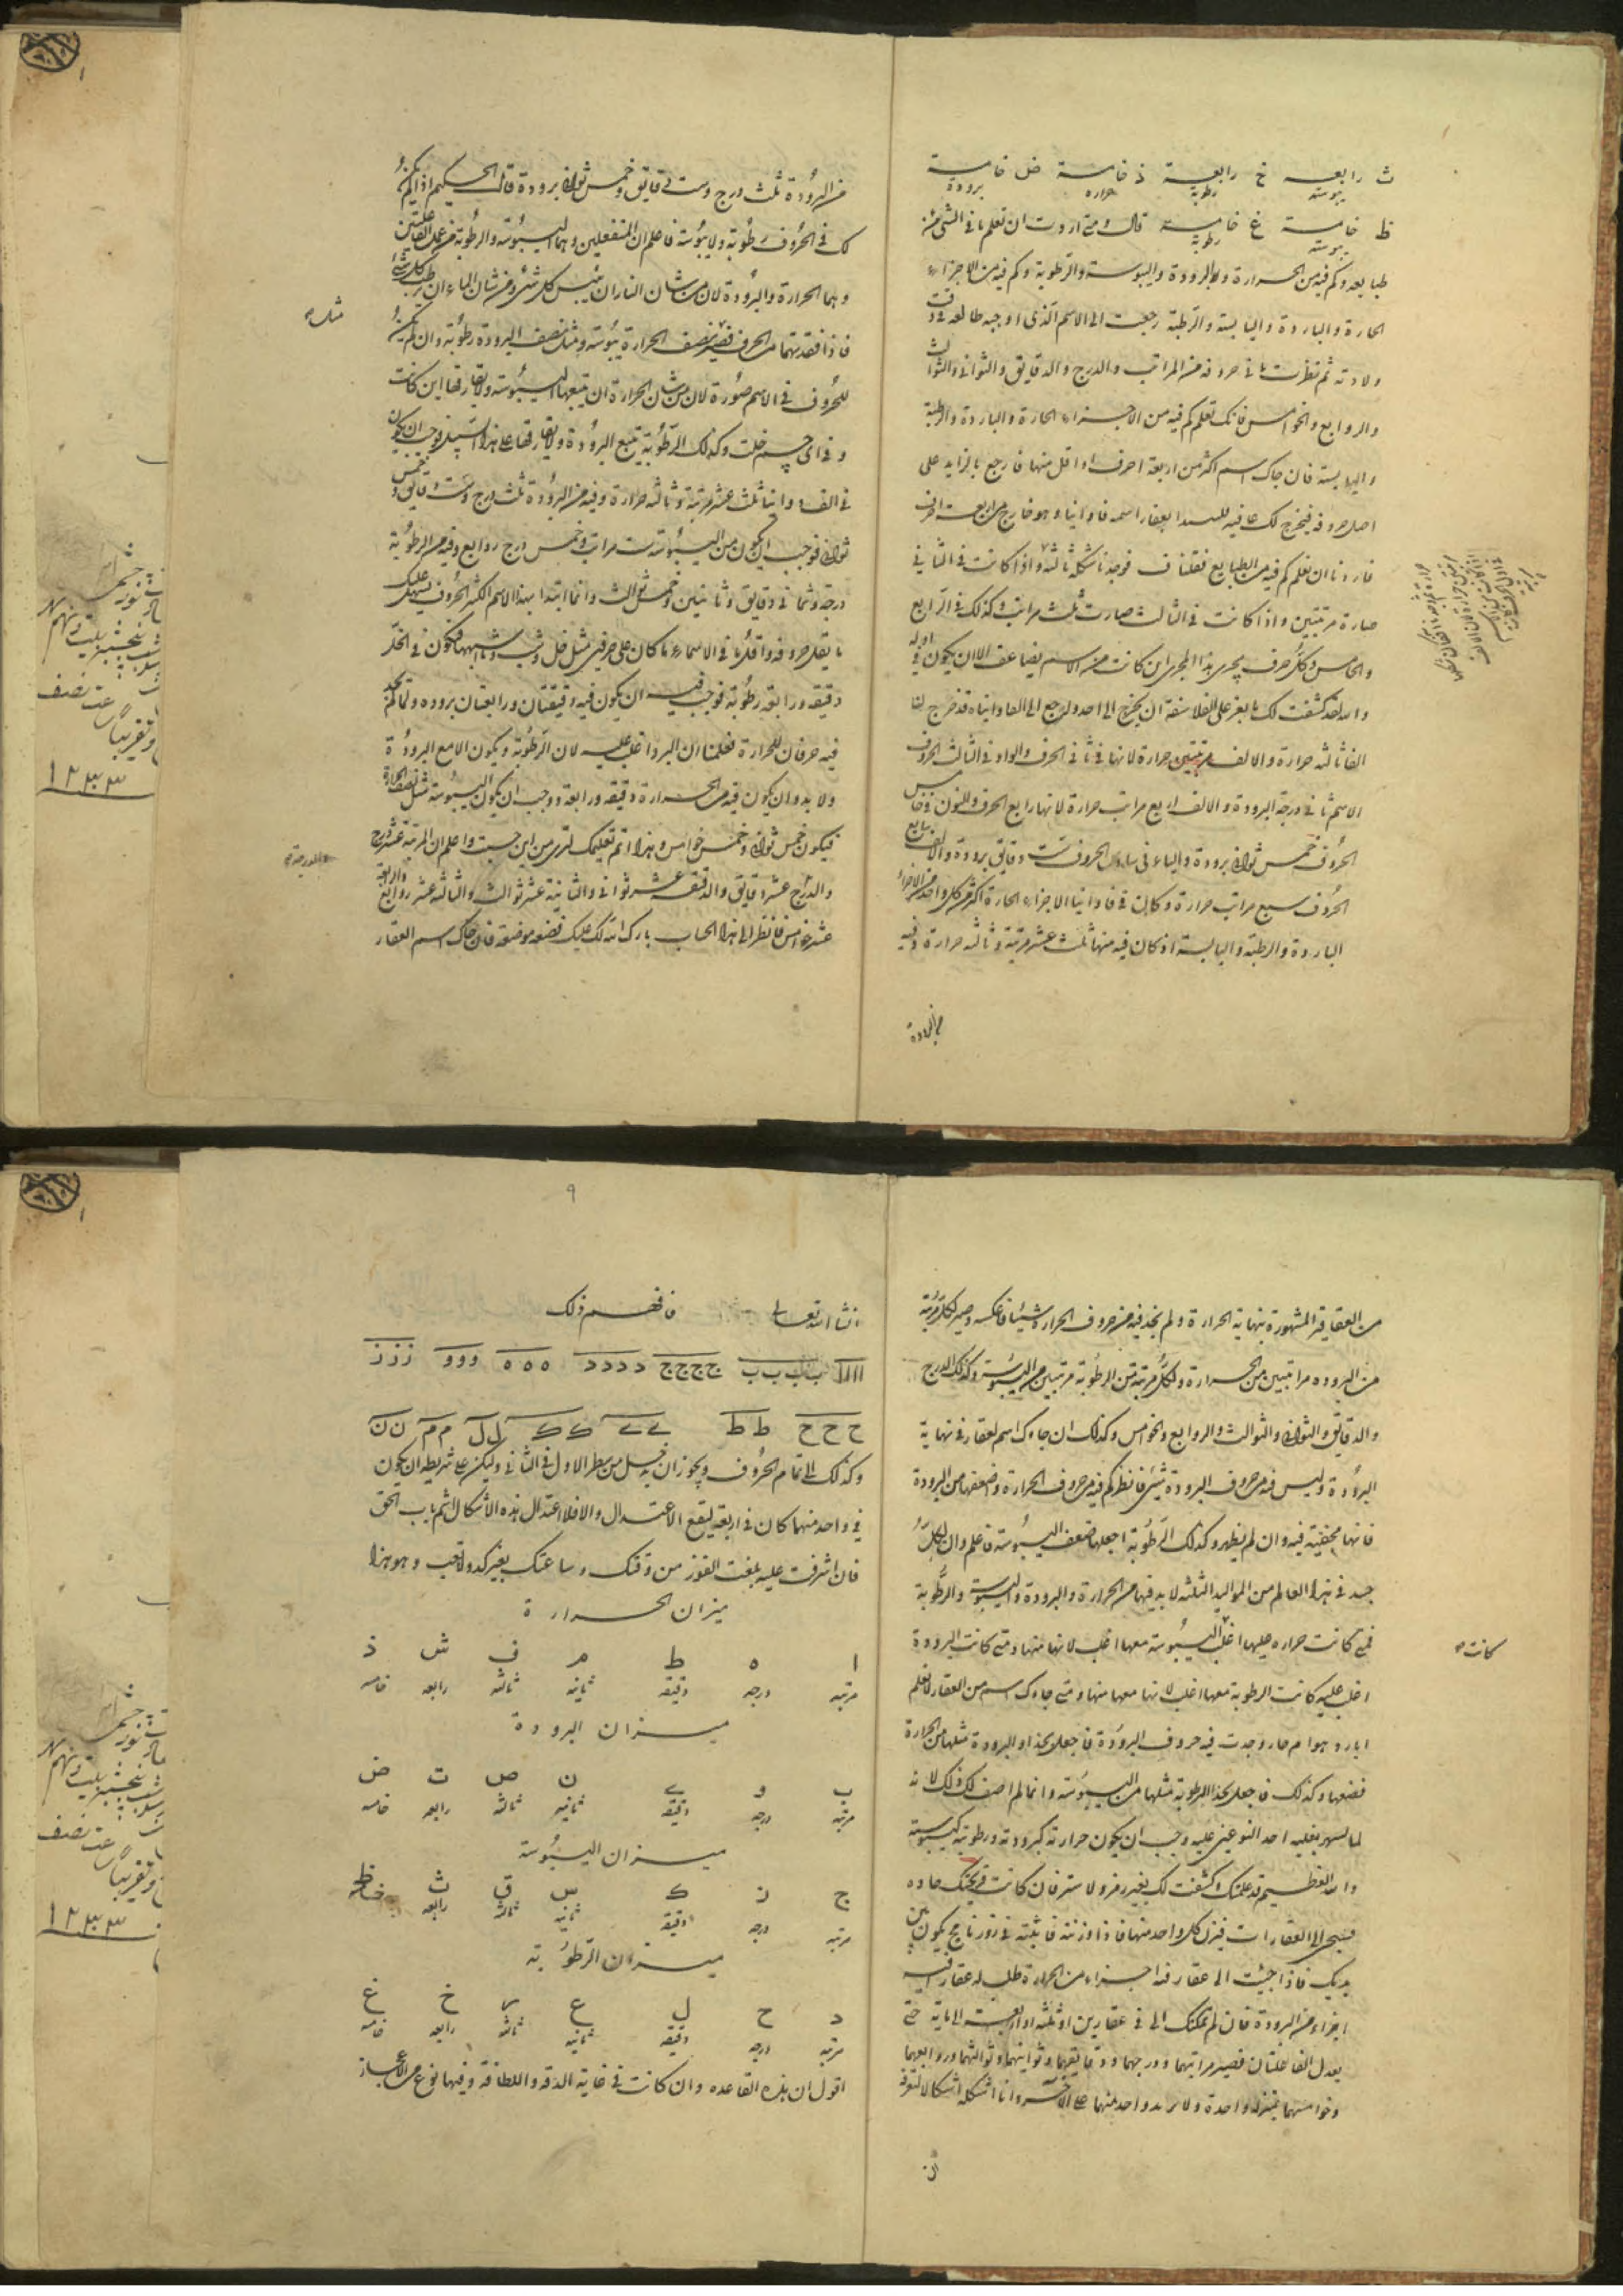 ث رابعـه خ رابعـة ذ خامسة ض خامسة
يبوسة رطوبة حرارة برودة
ظ خامسة غ خامسة قال ومتى اردت ان تعلم ما فى الشىء من
يبوسة رطوبة
طبايعه وكم فيه من الحرارة والبرودة واليبوسة والرطوبة وكم فيه من الاجزاء
الحارة والباردة واليابسة والرطبة رجعت الى الاسم الذى اوجبه طالعه فى وقت
ولادته ثم نظرت ما فى حروفه من المراتب والدرج والدقايق والثوانى والثوالث
والروابع والخوامس فانك تعلم كم فيه من الاجزاء الحارة والباردة والرطبة
واليابسة فان جاك اسم اكثر من اربعة احرف او اقل منها فارجع بالزايد على
اصل حروفه فيخرج لك ما فيه
فاردنا ان نعلم كم فيه من الطبايع فوجدنا شكله ثالثه واذا كانت فى الثانى
صارة مرتبتين واذا كانت فى الثالث صارت ثلث مراتب وكذلك فى الرابع
والخامس وكل حرف يجرى هذا المجرى اين كانت من الاسم يضاعف الا ان يكون فى اوله
والله لقد كشفت لك ما يعز على الفلاسفة ان يخرج الى احد ولنرجع الى الفاوانياه قد خرج لنا
الفا ثالثه حرارة والالف مرتبتين حرارة لانها فى ثانى الحرف والواو فى الثالث الحروف
الاسم ثانى درجة البرودة والالف اربع مراتب حرارة لانها رابع الحرف وللنون وخامس
الحروف خمس ثوانى برودة والياء فى سادس الحروف ست دقايق برودة والالف سابع
الحروف سبع مراتب حرارة وكان فى فاوانيا الاجزاء الحارة اكثر من كل واحد من الاجزاء
الباردة والرطبة واليابسة اذ كان فيه منها ثلث عشر مرتبة وثالثه حرارة وفيه
من البرودة
من البرودة ثلث درج وست دقايق وخمس ثوانى برودة قال الحكيم اذا لم يكن
لك فى الحروف رطوبة ولا يبوسة فاعلم ان المنفعلين وهما اليبوسة والرطوبة من عمل الفاعلتين
وهما الحرارة والبرودة لان من شان النار ان ييبس كل شىء ومن شان الماء ان يرطب كل شىء
فاذا فقدتهما من الحرف فصير نصف الحرارة يبوسة ومثل نصف البرودة رطوبة وان لم يكن
مثل
للحروف فى الاسم صورة لان من شان الحرارة ان يتبعها اليبوسة ولا يفارقها اين كانت
وفى اى جسم حلت وكذلك الرطوبة يتبع البرودة ولا يفارقها على هذا السبيل فوجب ان يكون
فى الفاوانيا ثلث عشر مرتبة وثالثه حرارة وفيه من البرودة ثلث درج وست دقايق وخمس
ثوانى فوجب ان يكون من اليبوسة ست مراتب وخمس درج روابع وفيه من الرطوبة
درجة وثمانى دقايق وثانيتين وخمس ثوالث وانما ابتدا بهذا الاسم الكثير الحروف ليسهل عليك
ما يقل حروفه واقل ما فى الاسماء ما كان على حرفين مثل خل وشب وما شبهها فيكون فى الخل
دقيقه ورابعه رطوبة فوجب فيه ان يكون فيه دقيقتان ورابعتان برودة ولما لم نجد
فيه حرفان للحرارة فعلمنا ان البرد اغلب عليه لان الرطوبة لا يكون الا مع البرودة
ولا بد وان يكون فيه من الحرارة دقيقه ورابعة ووجب ان يكون اليبوسة مثل نصف الحرارة
فيكون خمس ثوانى وخمس خوامس وهذا اتم تعليمك لترى من اين حسبت واعلم ان المرتبة عشر درج
والدرج عشر دقايق والدقيقه عشر ثوانى والثانية عشر ثوالث والثالثه عشر روابع والرابعة
عشر خوامس فانظر الى هذا الحساب بارك الله لك عليك فضعه موضعه فان جاك اسم العقار
من العقاقير المشهورة بنهاية الحرارة ولم يجد فيه من حروف الحرارة شيئا فاعكسه وصير لكل مرتبة
من البروده مراتبتين من الحرارة ولكل مرتبة من الرطوبة مرتبتين من اليبوسة وكذلك الدرج
والدقايق والثوانى والثوالث والروابع والخوامس وكذلك ان جاءك اسم لعقار فى نهاية
البرودة وليس فيه من حروف البرودة شىء فانظر كم فيه من حروف الحرارة وضعفها من البرودة
فانها مخفية فيه وان لم يظهر وكذلك الرطوبة اجعلها ضعف اليبوسة فاعلم وان لكل
جسد فى هذا العالم من المواليد الثلثه لا بد فيها من الحرارة والبرودة واليبوسة والرطوبة
فمتى كانت حراره عليها اغلب اليبوسة معها اغلب لانها منها ومتى كانت البرودة
كانت
اغلب عليه كانت الرطوبة معها اغلب لانها معها منها ومتى جاءك اسم من العقار لا تعلم
ابارد هو ام حار وجدت فيه حروف البرودة فاجعل بحذاء البرودة مثلها من الحرارة
فضعها وكذلك فاجعل بحذا الرطوبة مثلها من اليبوسة وانما لم اصف لك ذلك لانه
لما لم يشهر بغلبه احد النوعين عليه وجب ان يكون حرارته كبرودته ورطوبته كيبوسته
والله العظيم قد علمتك وكشفت لك بغير رمز ولا ستر فان كانت قريحتك حاده
فسبحى الى العقارات فيزن كل واحد منها فاذا وزنته فاثبته فى زورنامج يكون بين
يديك فاذا جئت الى عقار فيه اجزاء من الحرارة طلب له عقار فيه
اجزاء من البرودة فان لم تمكنك الى فى عقارين او ثلثه او اربعة الى ماية حتى
يعدل الفاعلتان فصير مراتبهما ودرجهما ودقايقهما وثوانيهما وثوالثهما وروابعهما
وخوامسهما بمنزله واحدة ولا يزيد واحد منهما على الاخر وانا اشكله اشكالا لتعرفه
ان
٩
انشا الله تعالى فافهم ذلك
اااا ب ب ب ب ج ج ج ج د د د د ه ه ه و و و ز ز ز
ح ح ح ط ط ى ى ك ك ل ل م م ن ن
وكذلك الى تمام الحروف ويجوز ان يدخل من سطر الاول فى الثانى وليكن على شريطه ان يكون
فى واحد منهما كان فى اربعة ليقع الاعتدال والا فلا اعتدال هذه الاشكال ثم باب الحق
فان اشرفت عليه بلغت الفوز من وقتك وساعتك بغير كد ولا تعب وهو هذا
ميزان الحرارة
ا ه ط م ف ش ذ
مرتبه درجه دقيقه ثانيه ثالثه رابعه خامسه
ميزان البرودة
ب و ى ن ص ت ض
مرتبه درجه دقيقه ثانيه ثالثه رابعه خامسه
ميزان اليبوسة
ج ز ك س ق ث ظ
مرتبه درجه دقيقه ثانيه ثالثه رابعه خامسه
ميزان الرطوبة
د ح ل ع ر خ غ
مرتبه درجه دقيقه ثانيه ثالثه رابعه خامسه
اقول ان هذه القاعده وان كانت فى غاية الدقه واللطافة وفيها نوع من الاعجاز